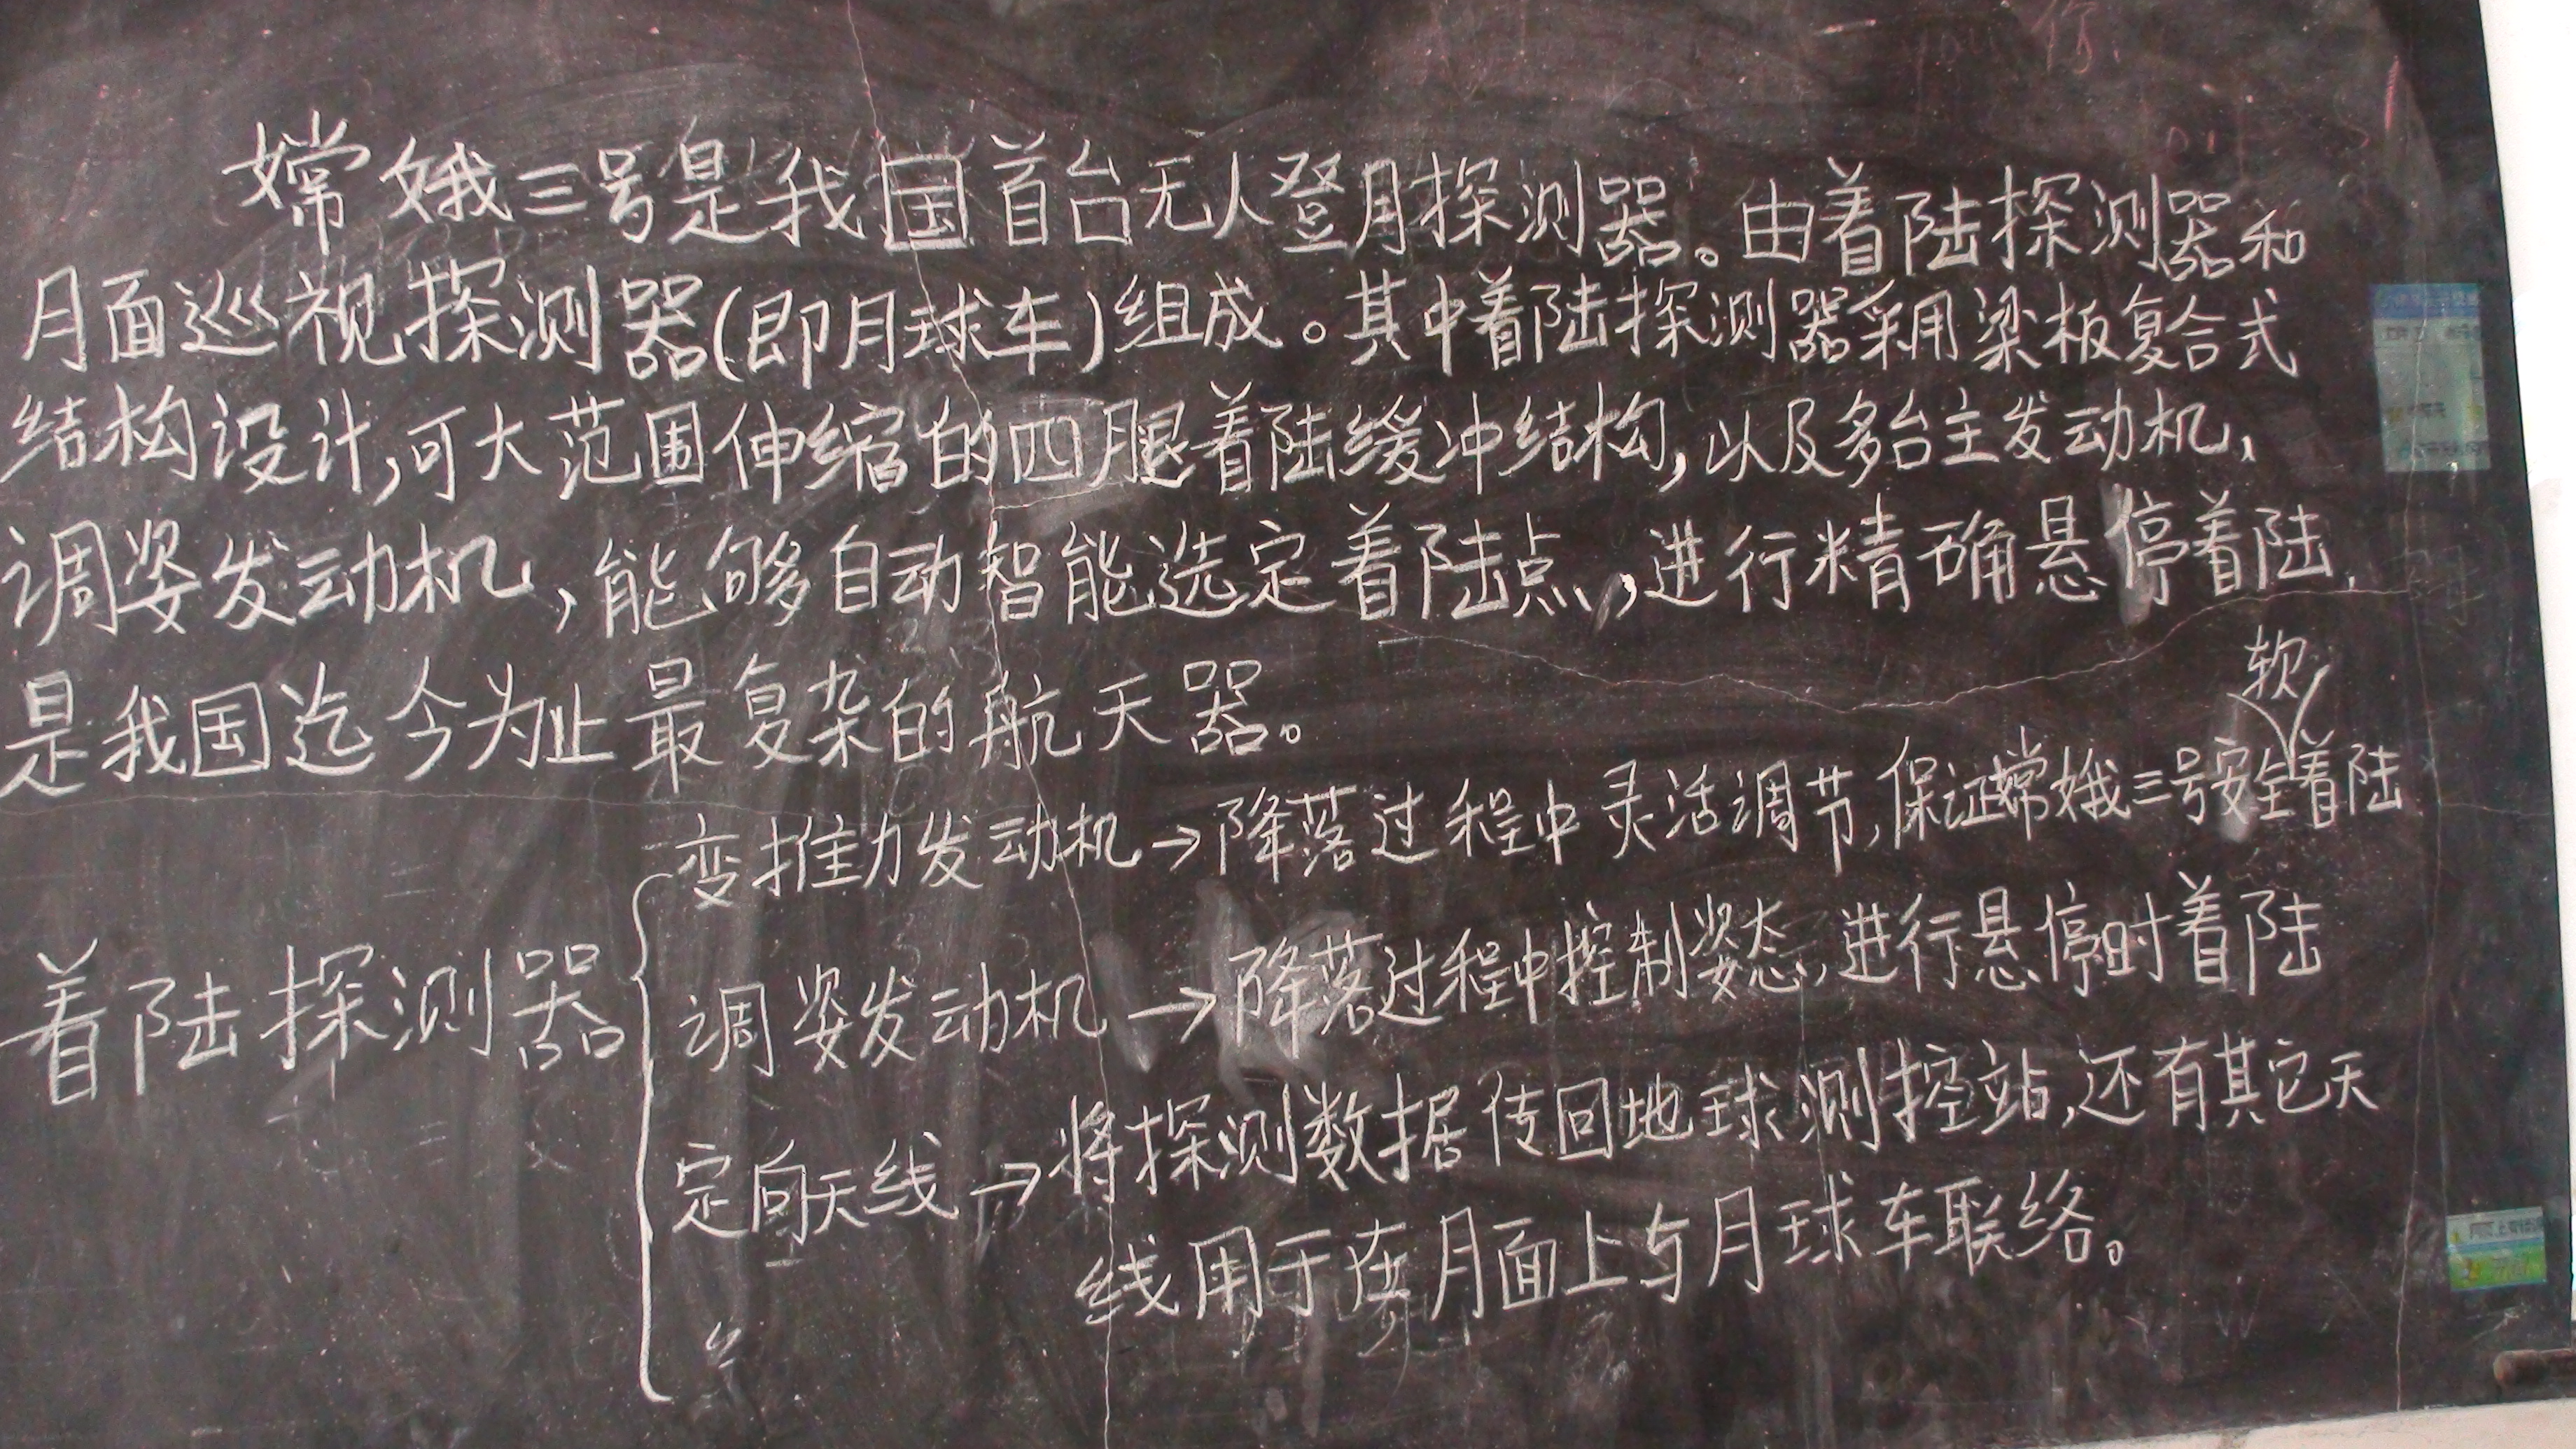 嫦娥三号是我国首台无人登月探测器。由着陆探测器和
月面巡视探测器(即月球车)组成。其中着陆探测器采用梁板复合式
结构设计,可大范围伸缩的四腿着陆缓冲结构,以及多台主发动机、
调姿发动机,能够自动智能选定着陆点,进行精确悬停着陆,
是我国迄今为止最复杂的航天器。
软
变推力发动机→降落过程中灵活调节,保证嫦娥三号安全着陆
着陆探测器
调姿发动机→降落过程中控制姿态,进行悬停时着陆
定向天线→将探测数据传回地球测控站,还有其它天
线用于在月面上与月球车联络。